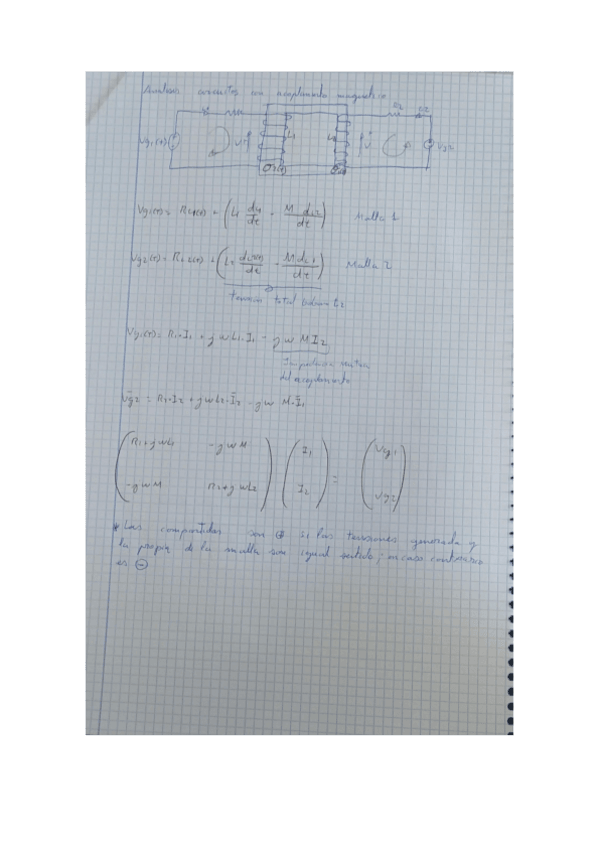 Analisar circuitos con acoplamiento magnetico
R2
Vg1(t) L1 L2 Vg2
Vg1(t) = R1 i1(t) + (L1 di1/dt - M di2/dt) Malla 1
Vg2(t) = R2 i2(t) + (L2 di2(t)/dt - M di1/dt) Malla 2
tension total bobina L2
Vg1(t) = R1·I1 + jωL1·I1 - jω M I2
Impedancia mutua
del acoplamiento
Vg2 = R2·I2 + jωL2·I2 - jω M·I1
R1+jωL1 -jωM I1 = Vg1
-jωM R2+jωL2 I2 Vg2
* Las compartidas son ⊕ si las tensiones generada y
la propia de la malla son igual sentido, en caso contrario
es ⊖